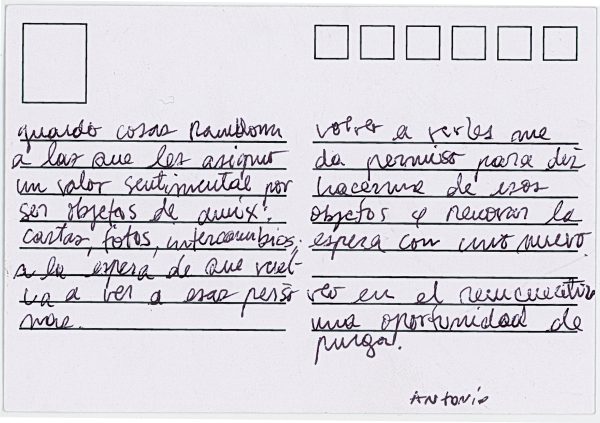 guardo cosas random
a las que les asigno
un valor sentimental por
ser objetos de amix:
cartas, fotos, intercambios;
a la espera de que vuel-
va a ver a esas perso
nas.
volver a verles me
da permiso para des
hacerme de esos
objetos y renovar la
espera con uno nuevo.
veo en el reencuentro
una oportunidad de
purga.
ANTONIO